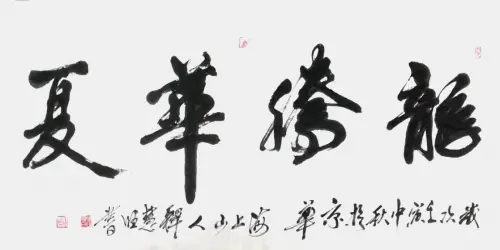 龍騰華夏
歲次中秋於京華 海上山人釋慧旺書